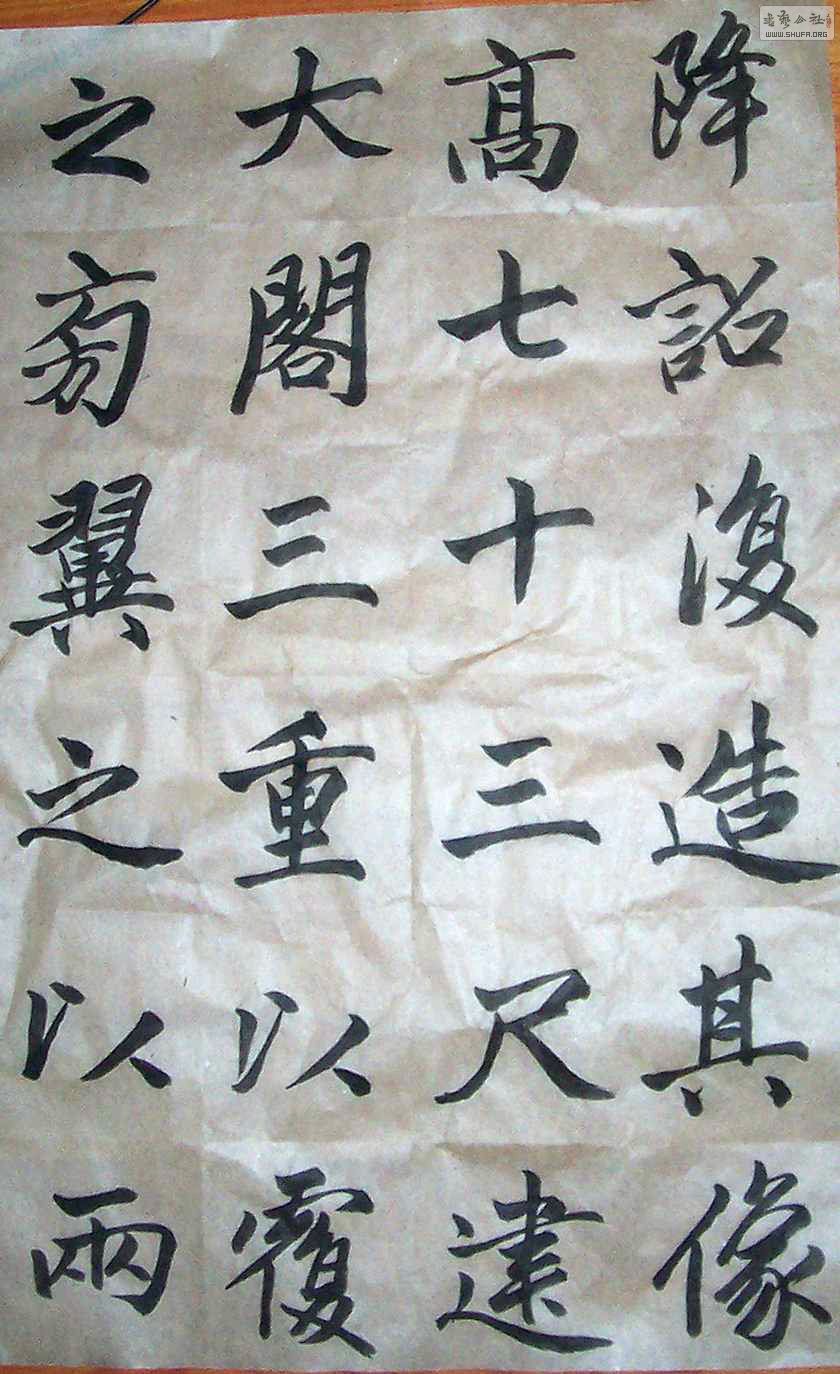 降詔復造其像
髙七十三尺建
大閣三重以覆
之旁翼之以兩
书艺公社
WWW.SHUFA.ORG